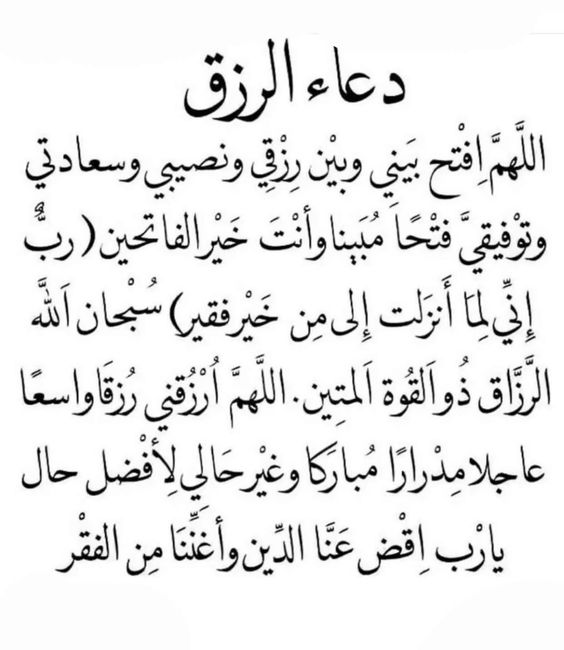 دعاء الرزق
اللَّهمَّ اِفْتح بَيَني وبيْن رِزْقِي ونصيبي وسعادتي
وتوْفيقيَّ فتْحًا مُبَينا وأنْتَ خَيْر الفاتحين (ربٌّ
إنِّي لِمَا أَنزَلت إلى مِن خَيْر فقير) سُبْحان اَللَّه
الرَّزَّاق ذُو اَلقُوة اَلمتِين. اللَّهمَّ اُرْزُقني رُزقَا واسعًا
عاجلا مِدْرارًا مُبارَكا وغيْر حَالِي لِأفْضل حال
يارْب اِقْض عَنَّا الدِّين وأغَنِّنَا مِن الفقْر